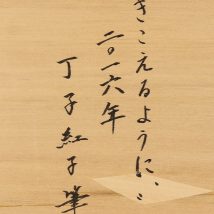 きこえるように、、
二〇一六年
丁子紅子筆